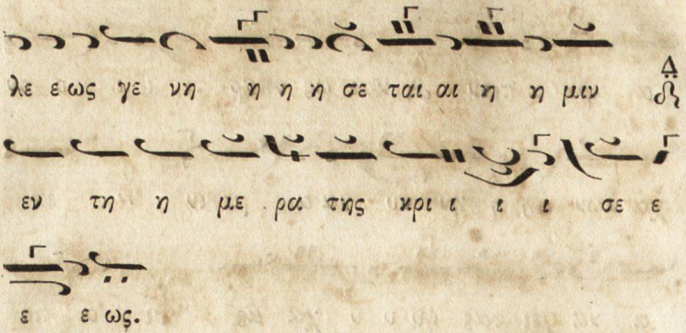 λε ε ως γε νη η η η σε ται αι η η μιν
εν τη η με ρα της κρι ι ι ι σε ε
ε ε ως.